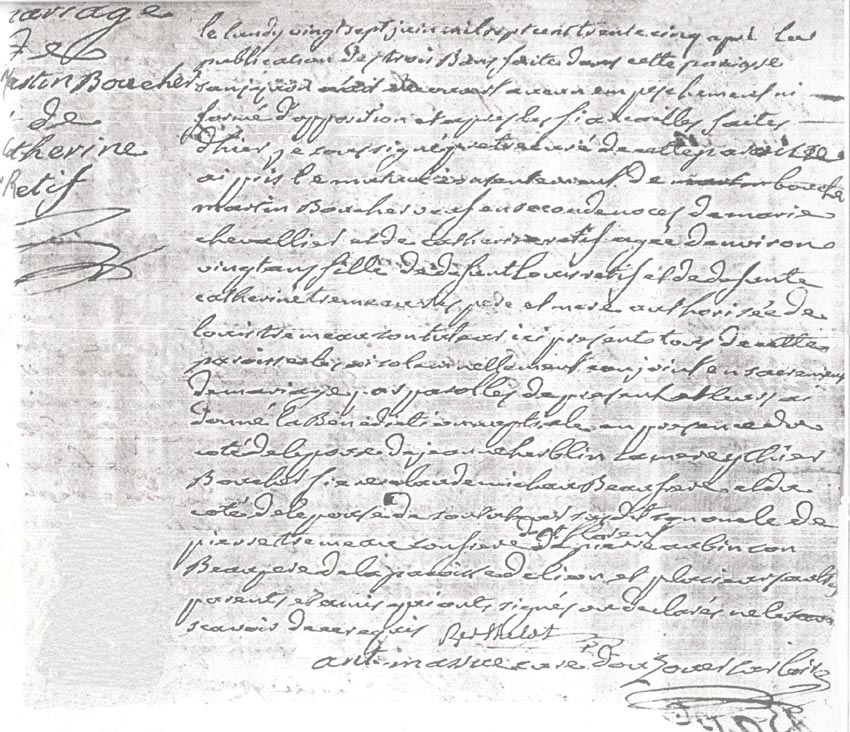 mariage
de
Martin Boucher
de
Catherine
Retif
le lundy vingt sept juin mil sept cent trente cinq apré les
publication des trois Bans faite dans cette paroisse
sans qu'on ait decouvert aucun empeschement ni
formé d'opposition et apres les fiancailles faites
d'hier je soussigné pretre curé de cette paroisse
ai pris le mutuel consentement de boucher
martin Boucher veuf en seconde noces de marie
chevallier et de catherine retif agée d'environ
vingt ans fille de defunt louis retif et de defunte
catherine tremeau ses pere et mere authorisée de
louis tremeau son tuteur ici present tous de cette
paroisse les ai solemnellement conjoint en sacrement
de mariage par parolles de present et leurs ai
donné la Bénédiction nuptiale en presence du
coté de lepoux de jeanne herblin sa mere
Boucher frere claude michau Beaufrere et du
coté de lepouse de son tuteur de
pierre tremeau son frere de pierre aubin son
Beaupere de la paroisse de lion et plusieurs autres
parents et amis qui ont signés ou declarés ne le
scavoir de ce requis Berthelot
ant. curé d'ouzouer sur loire